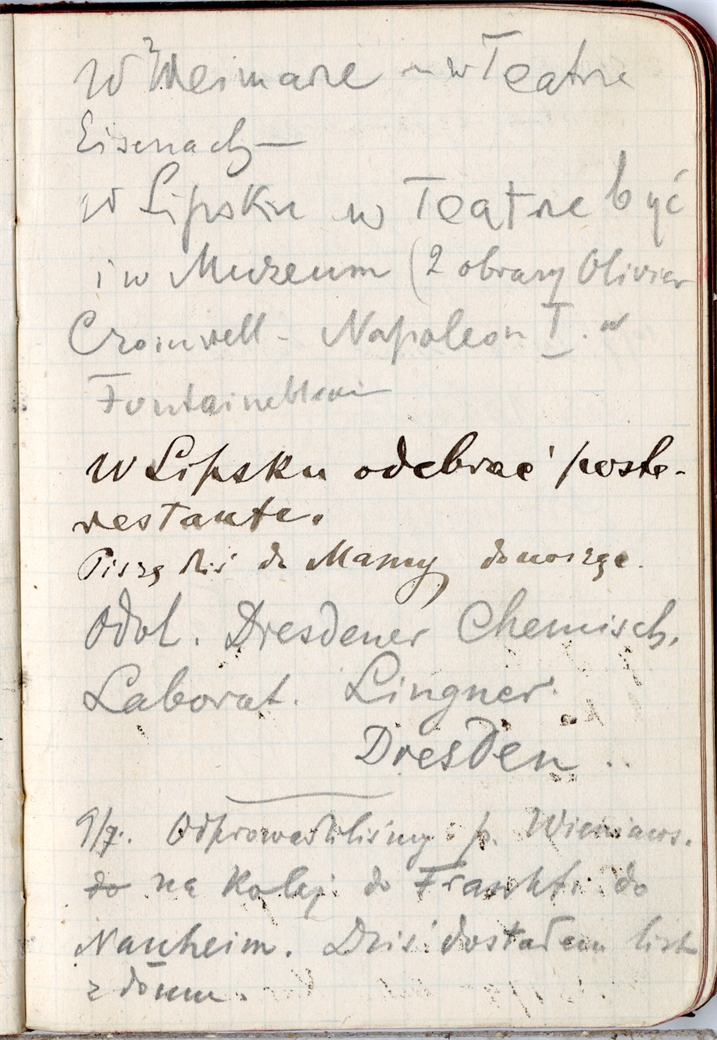 W Weimarze – w Teatrze
Eisenach —
w Lipsku w Teatrze być
i w Muzeum (2 obrazy Olivier
Cromwell – Napoleon I. w
Fontainebleau
W Lipsku odebrać poste-
restante.
Piszę dziś do Mamy donosząc.
Odol. Dresdener Chemisch.
Laborat. Lingner.
Dresden ..
9/7. Odprowadziliśmy p. Wieniaws.
do na kolej do Frankft. do
Nauheim. Dziś dostałem list
z domu.